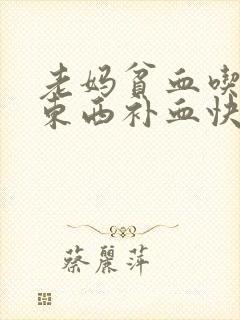 老妈贫血喫
东西补血快
蔡麗萍